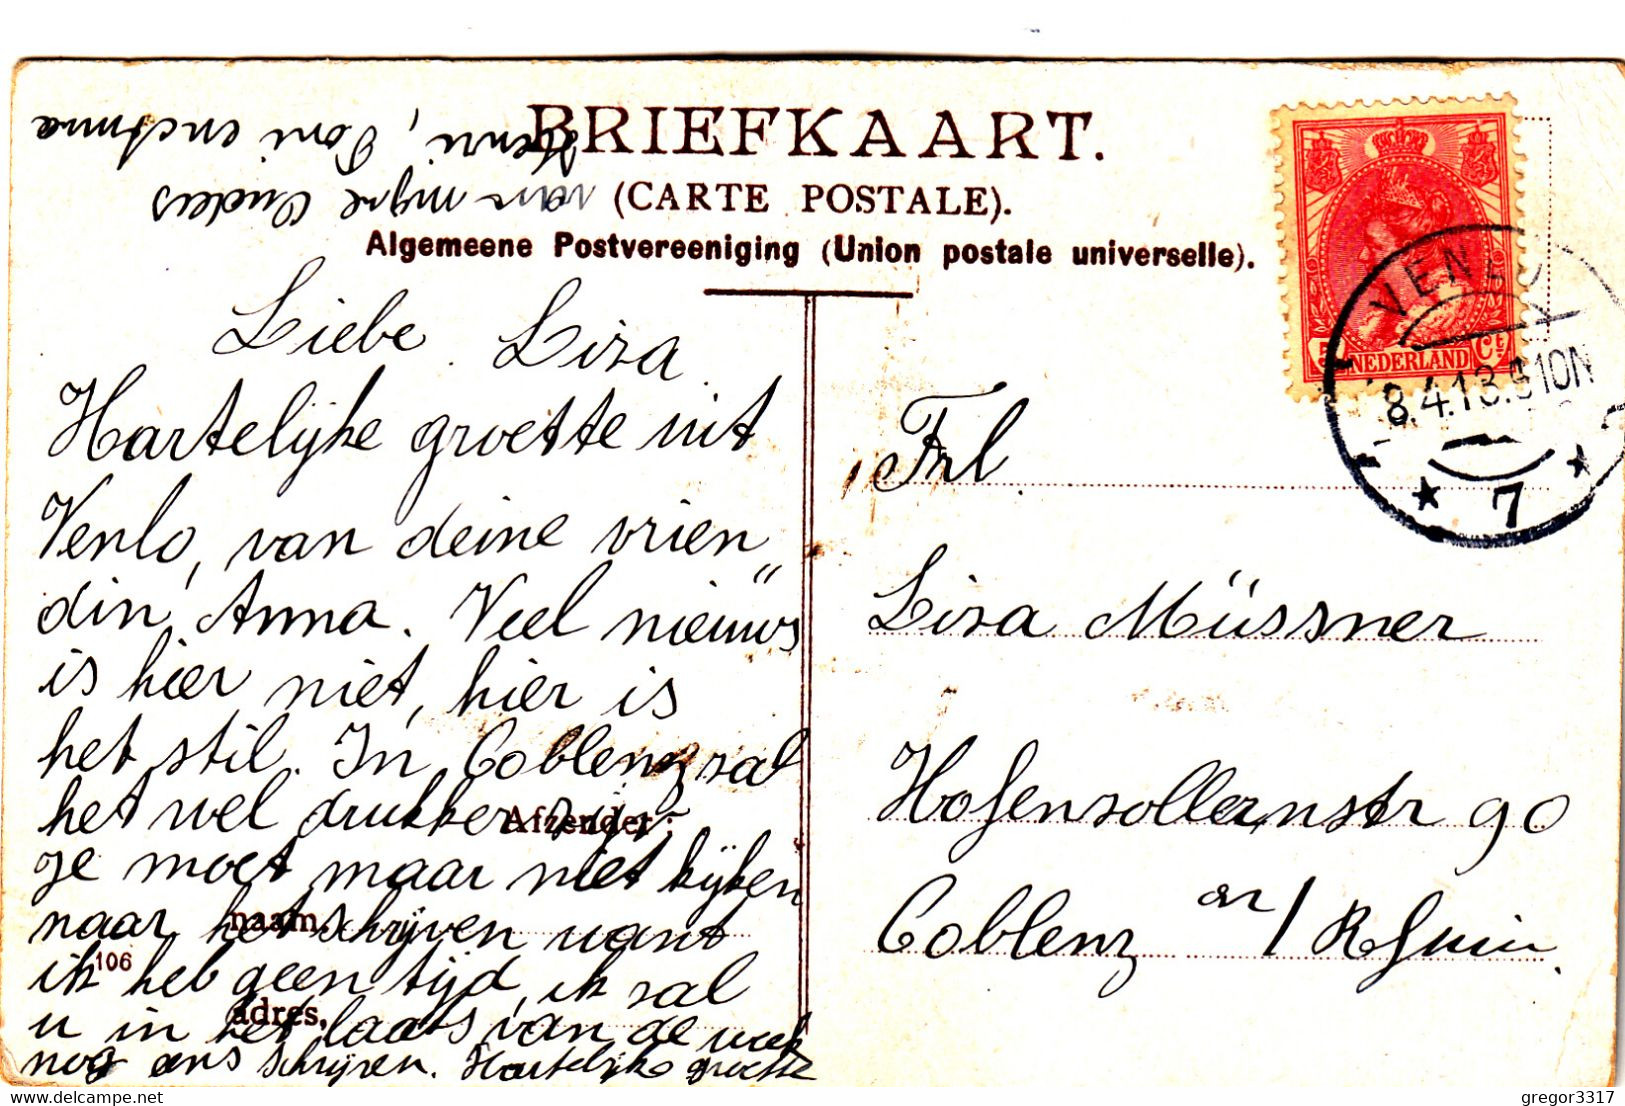 BRIEFKAART.
(CARTE POSTALE).
Algemeene Postvereeniging (Union postale universelle).
van mijne Ouders
Henri, Toni en
Liebe Lisa
Hartelijke groette uit
Venlo, van deine vrien„
din Anna. Veel nieuws
is hier niet, hier is
het stil. In Coblenz sal
het wel drukker zijn
je moet maar niet kijken
naar het schrijven want
ik heb geen tijd, ik sal
u in het laats van de week
nog ens schrijven. Hartelijke groette
Afzender:
naam,
106
adres,
NEDERLAND
5 Ct
VENLO
8.4.13. 10N
7
Frl.
Lisa Müssner
Hohenzollernstr 90
Coblenz an/Rhein.
Delcampe.net
gregor3317